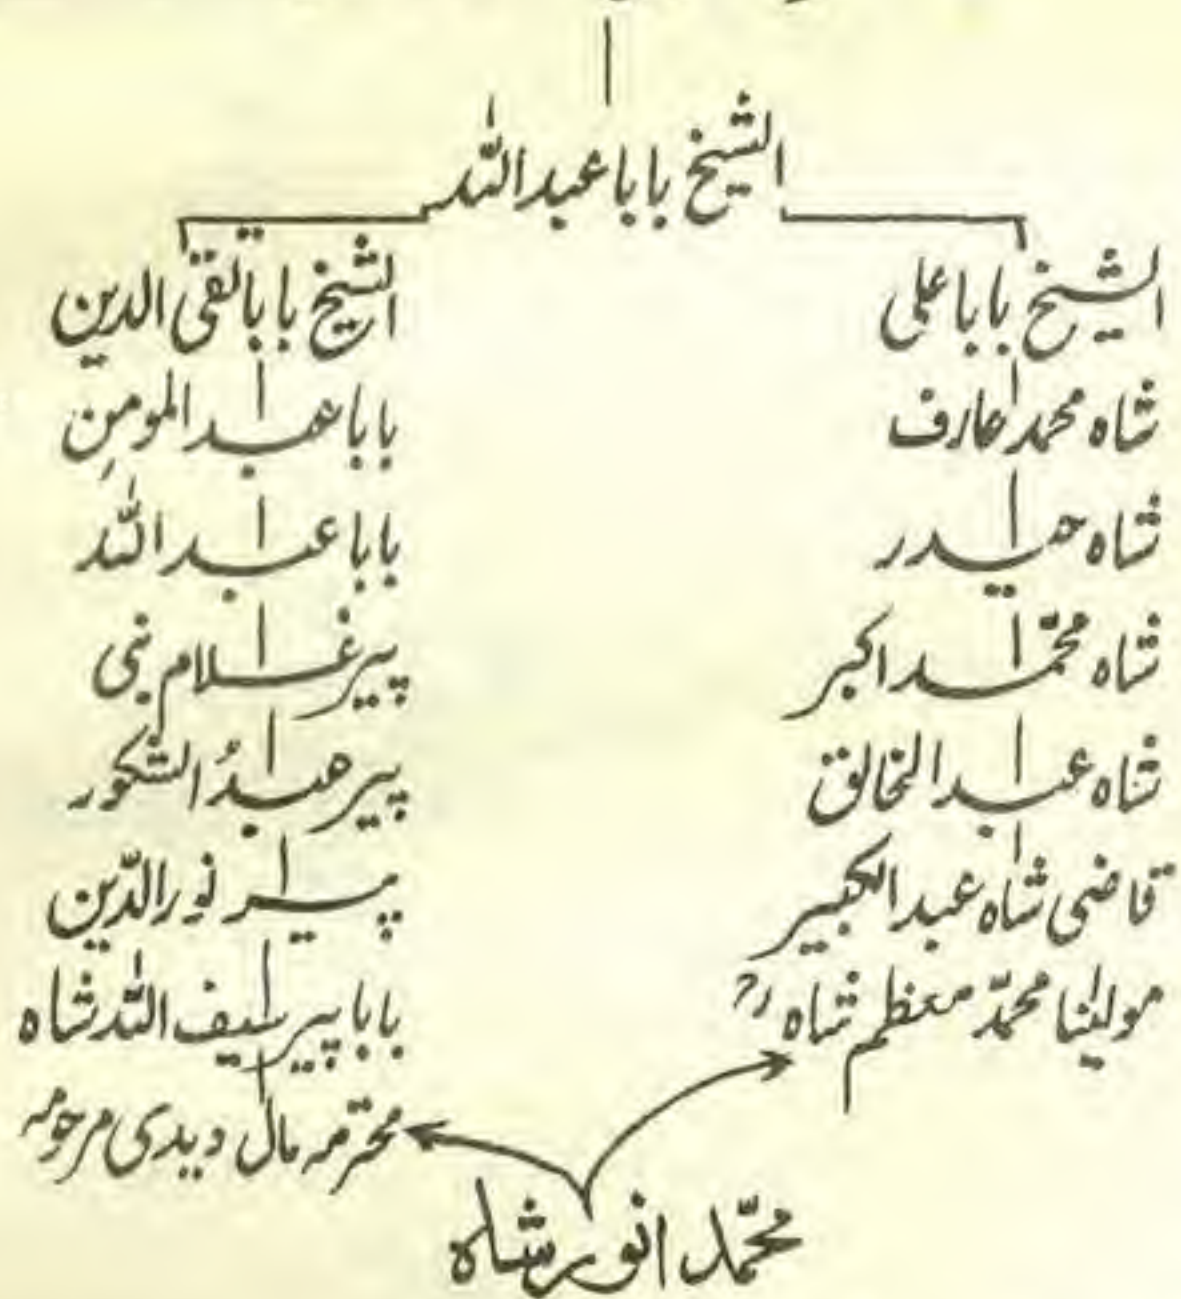 الشیخ بابا عبداللہ
الشیخ بابا علی
شاہ محمد عارف
شاہ حیدر
شاہ محمّد اکبر
شاہ عبدالخالق
قاضی شاہ عبدالکبیر
مولینا محمدّ معظم شاہ رح
الشیخ بابا تقی الدین
بابا عبدالمومنِ
بابا عبداللہ
پیر غلام نبی
پیر عبدُالشکور
پیر نورالدّین
بابا پیر سیف اللہ شاہ
محترمہ مال دیدی مرحومہ
محمّد انور شاہ